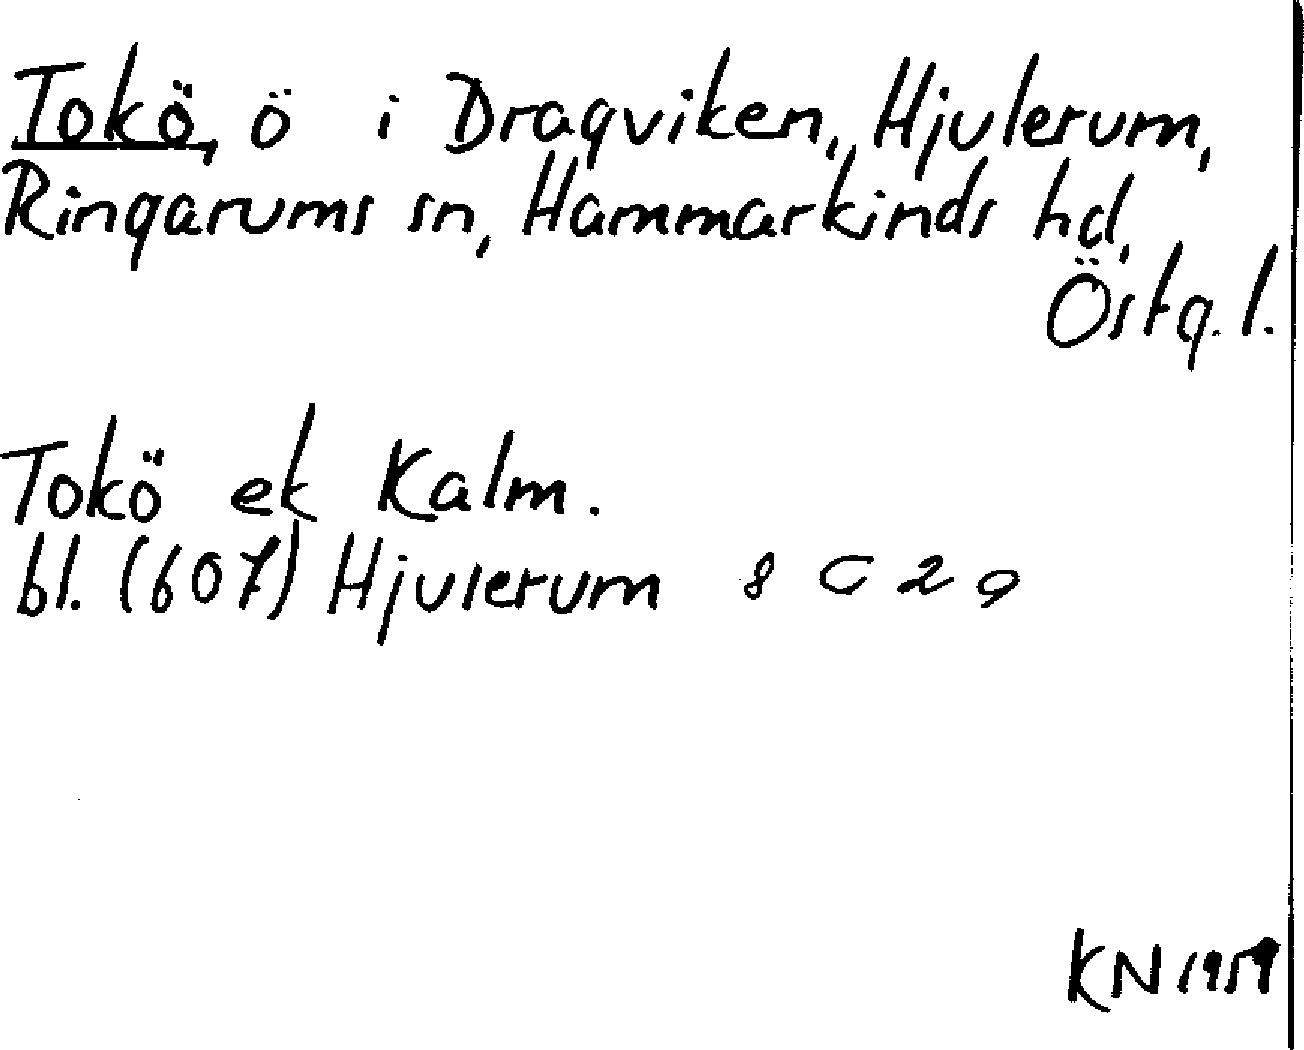 Tokö, ö i Dragviken, Hjulerum,
Ringarums sn, Hammarkinds hd,
Östg. l.
Tokö ek Kalm.
bl. (607) Hjulerum 8 C 2 a
KN 1959